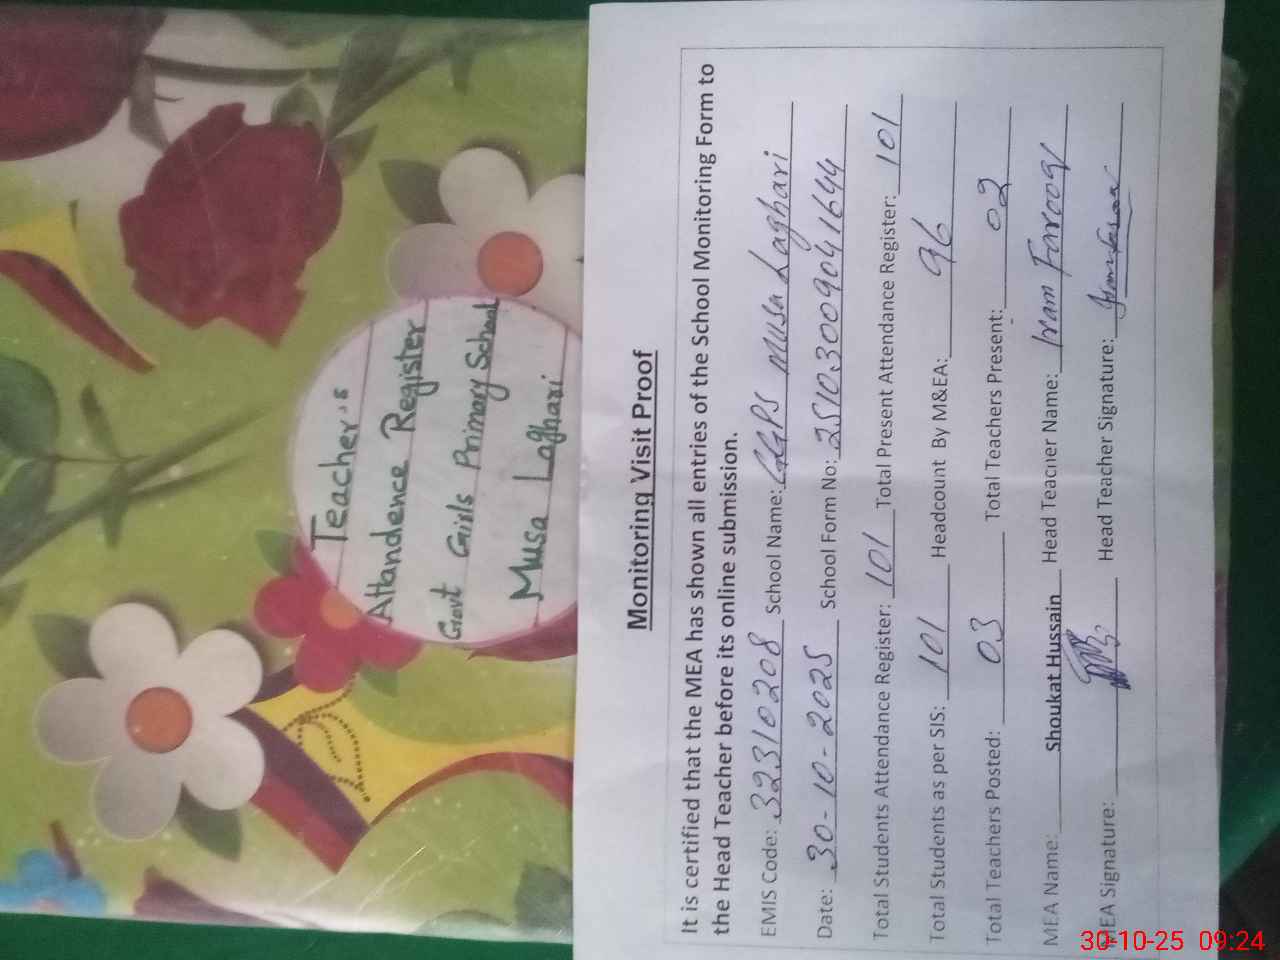 Teacher's
Attandence Register
Govt Girls Primary School
Musa Laghari
Monitoring Visit Proof
It is certified that the MEA has shown all entries of the School Monitoring Form to
the Head Teacher before its online submission.
EMIS Code: 32310208 School Name: GGPS Musa Laghari
Date: 30-10-2025 School Form No: 25103009041644
Total Students Attendance Register: 101 Total Present Attendance Register: 101
Total Students as per SIS: 101 Headcount By M&EA: 96
Total Teachers Posted: 03 Total Teachers Present: 02
MEA Name: Shoukat Hussain Head Teacher Name: Iram Farooq
MEA Signature: Head Teacher Signature:
30-10-25 09:24